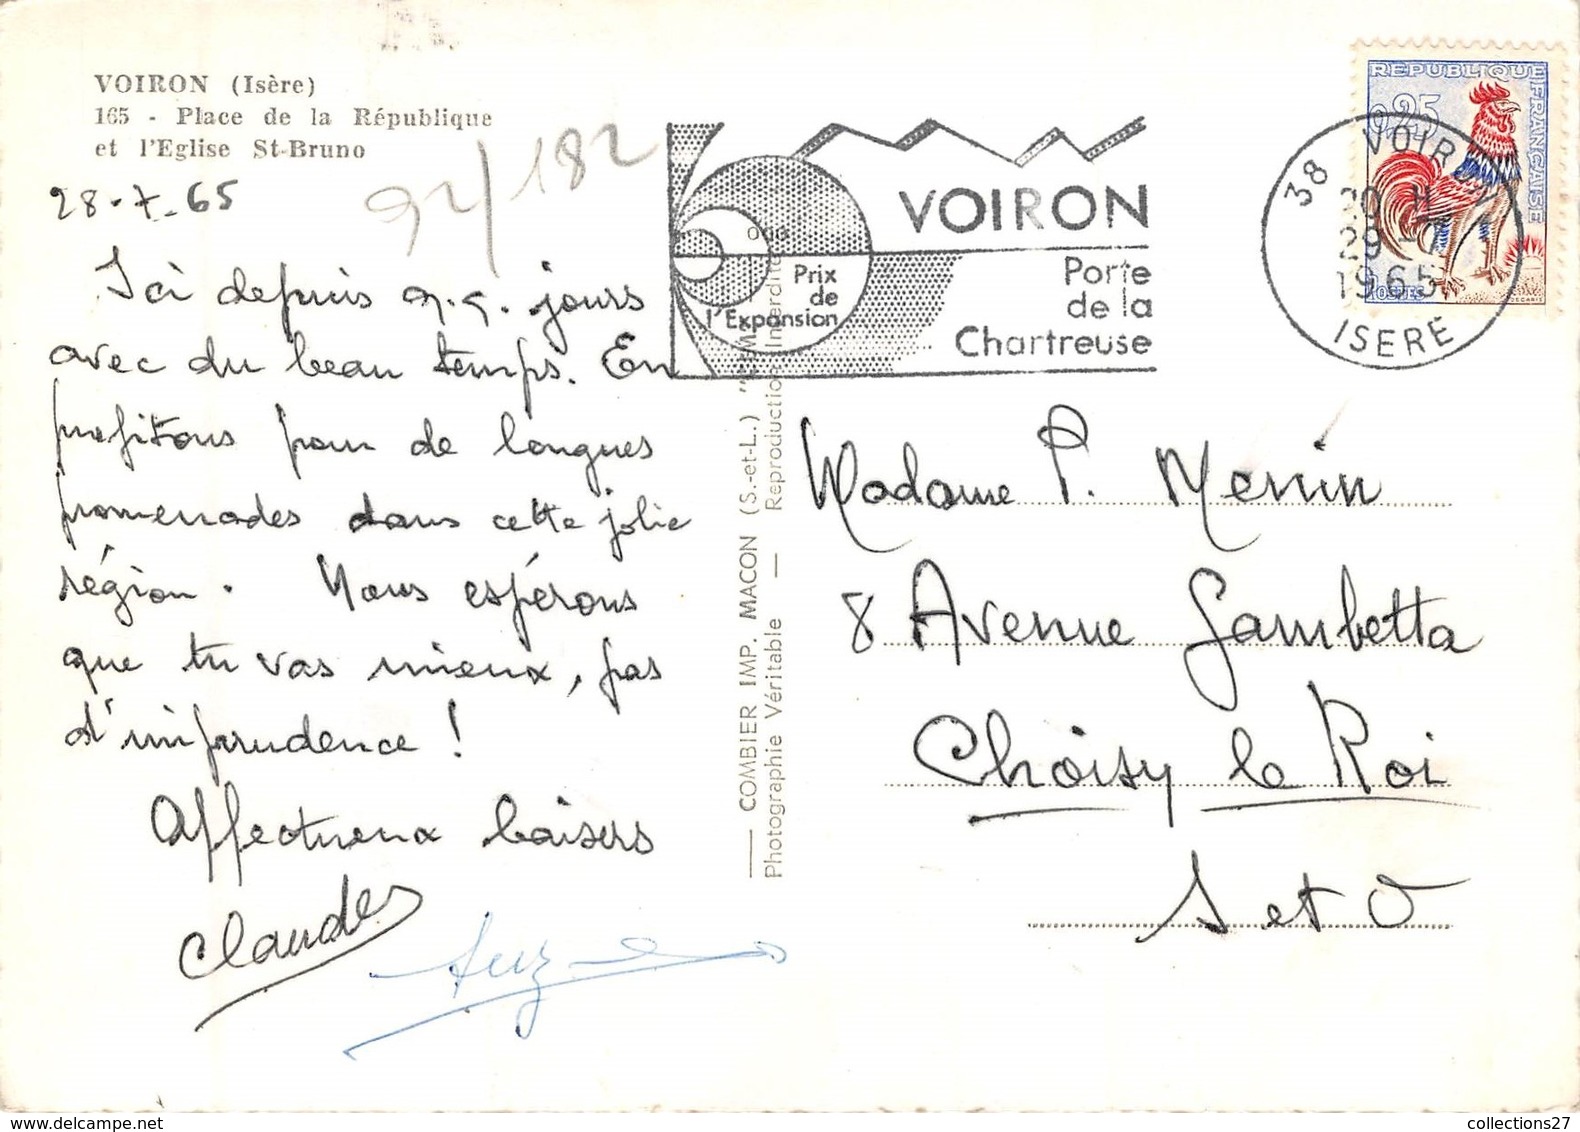 VOIRON (Isère)
165 - Place de la République
et l'Eglise St-Bruno
28-7-65
92/182
Ici depuis q.q. jours
avec du beau temps. En
profitons pour de longues
promenades dans cette jolie
région. Nous espérons
que tu vas mieux, pas
d'imprudence !
Affectueux baisers
Claudes
Suz
COMBIER IMP. MACON (S.-et-L.) "CIM"
Photographie Véritable — Reproduction Interdite
VOIRON
Porte
de la
Chartreuse
Prix
de
l'Expansion
38 VOIRON
20 H
29-7
1965
ISERE
REPUBLIQUE FRANÇAISE
0,25
POSTES
DECARIS
Madame P. Menin
8 Avenue Gambetta
Choisy le Roi
S et O
collections27